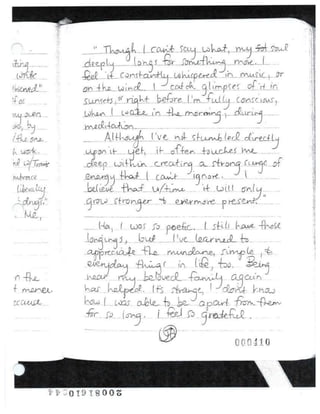 "Though I can't say what, my soul
deeply longs for something more. I
feel it constantly whispered in music, or
on the wind. I catch glimpses of it in
sunsets, right before I'm fully conscious,
when I wake in the morning, during
meditation.
Although I've not stumbled directly
upon it yet, it often touches me
deep within creating a strong surge of
energy that I can't ignore. I
believe that w/time it will only
grow stronger & evermore present."
Ha, I was so poetic. I still have those
longings, but I've learned to
appreciate the mundane, simple, &
everyday things in life, too. Being
near my beloved family again
has helped. It's strange, I don't know
how I was able to be apart from them
for so long. I feel so grateful.
000110
write
my own
so, by
the one
& work.
liberality
Me,
in the
because